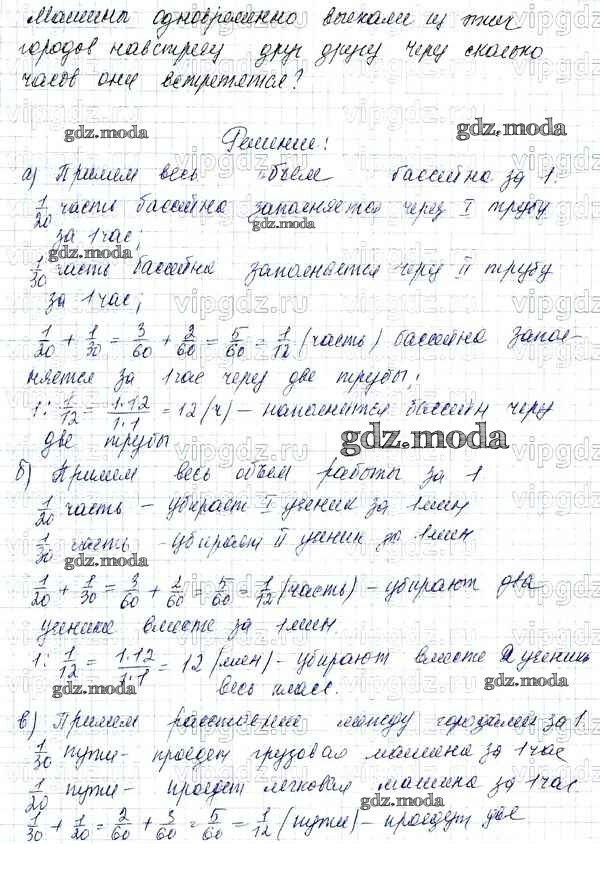 Машины одновременно выехали из этих
городов навстречу друг другу через сколько
часов они встретятся?
gdz.moda
gdz.moda
Решение:
а) Примем весь объем бассейна за 1.
1/20 часть бассейна заполняется через I трубу
gdz.moda
за 1 час;
gdz.moda
1/30 часть бассейна заполняется через II трубу
за 1 час;
1/20 + 1/30 = 3/60 + 2/60 = 5/60 = 1/12 (часть) бассейна запол-
няется за 1 час через две трубы;
1 : 1/12 = 1·12/1·1 = 12 (ч) – наполнится бассейн через
две трубы
gdz.moda
б) Примем весь объем работы за 1
1/20 часть – убирает I ученик за 1 мин
1/30 часть – убирает II ученик за 1 мин
gdz.moda
gdz.moda
1/20 + 1/30 = 3/60 + 2/60 = 5/60 = 1/12 (часть) – убирают два
ученика вместе за 1 мин.
1 : 1/12 = 1·12/1·1 = 12 (мин) – убирают вместе 2 ученик
весь класс.
gdz.moda
gdz.moda
в) Примем расстояние между городами за 1.
gdz.moda
1/30 пути – проедет грузовая машина за 1 час
1/20 пути – проедет легковая машина за 1 час.
gdz.moda
1/30 + 1/20 = 2/60 + 3/60 = 5/60 = 1/12 (пути) – проедут две
gdz.moda
vipgdz.ru